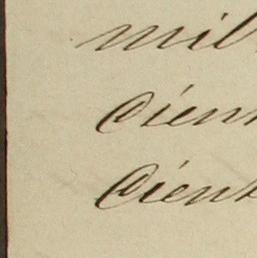 mil
cien
Cient